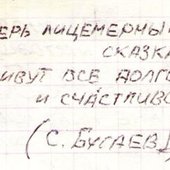 ЕРЬ ЛИЦЕМЕРНЫ
СКАЗКА
ИВУТ ВСЕ ДОЛГО
И СЧАСТЛИВО
(С. БУГАЕВ)